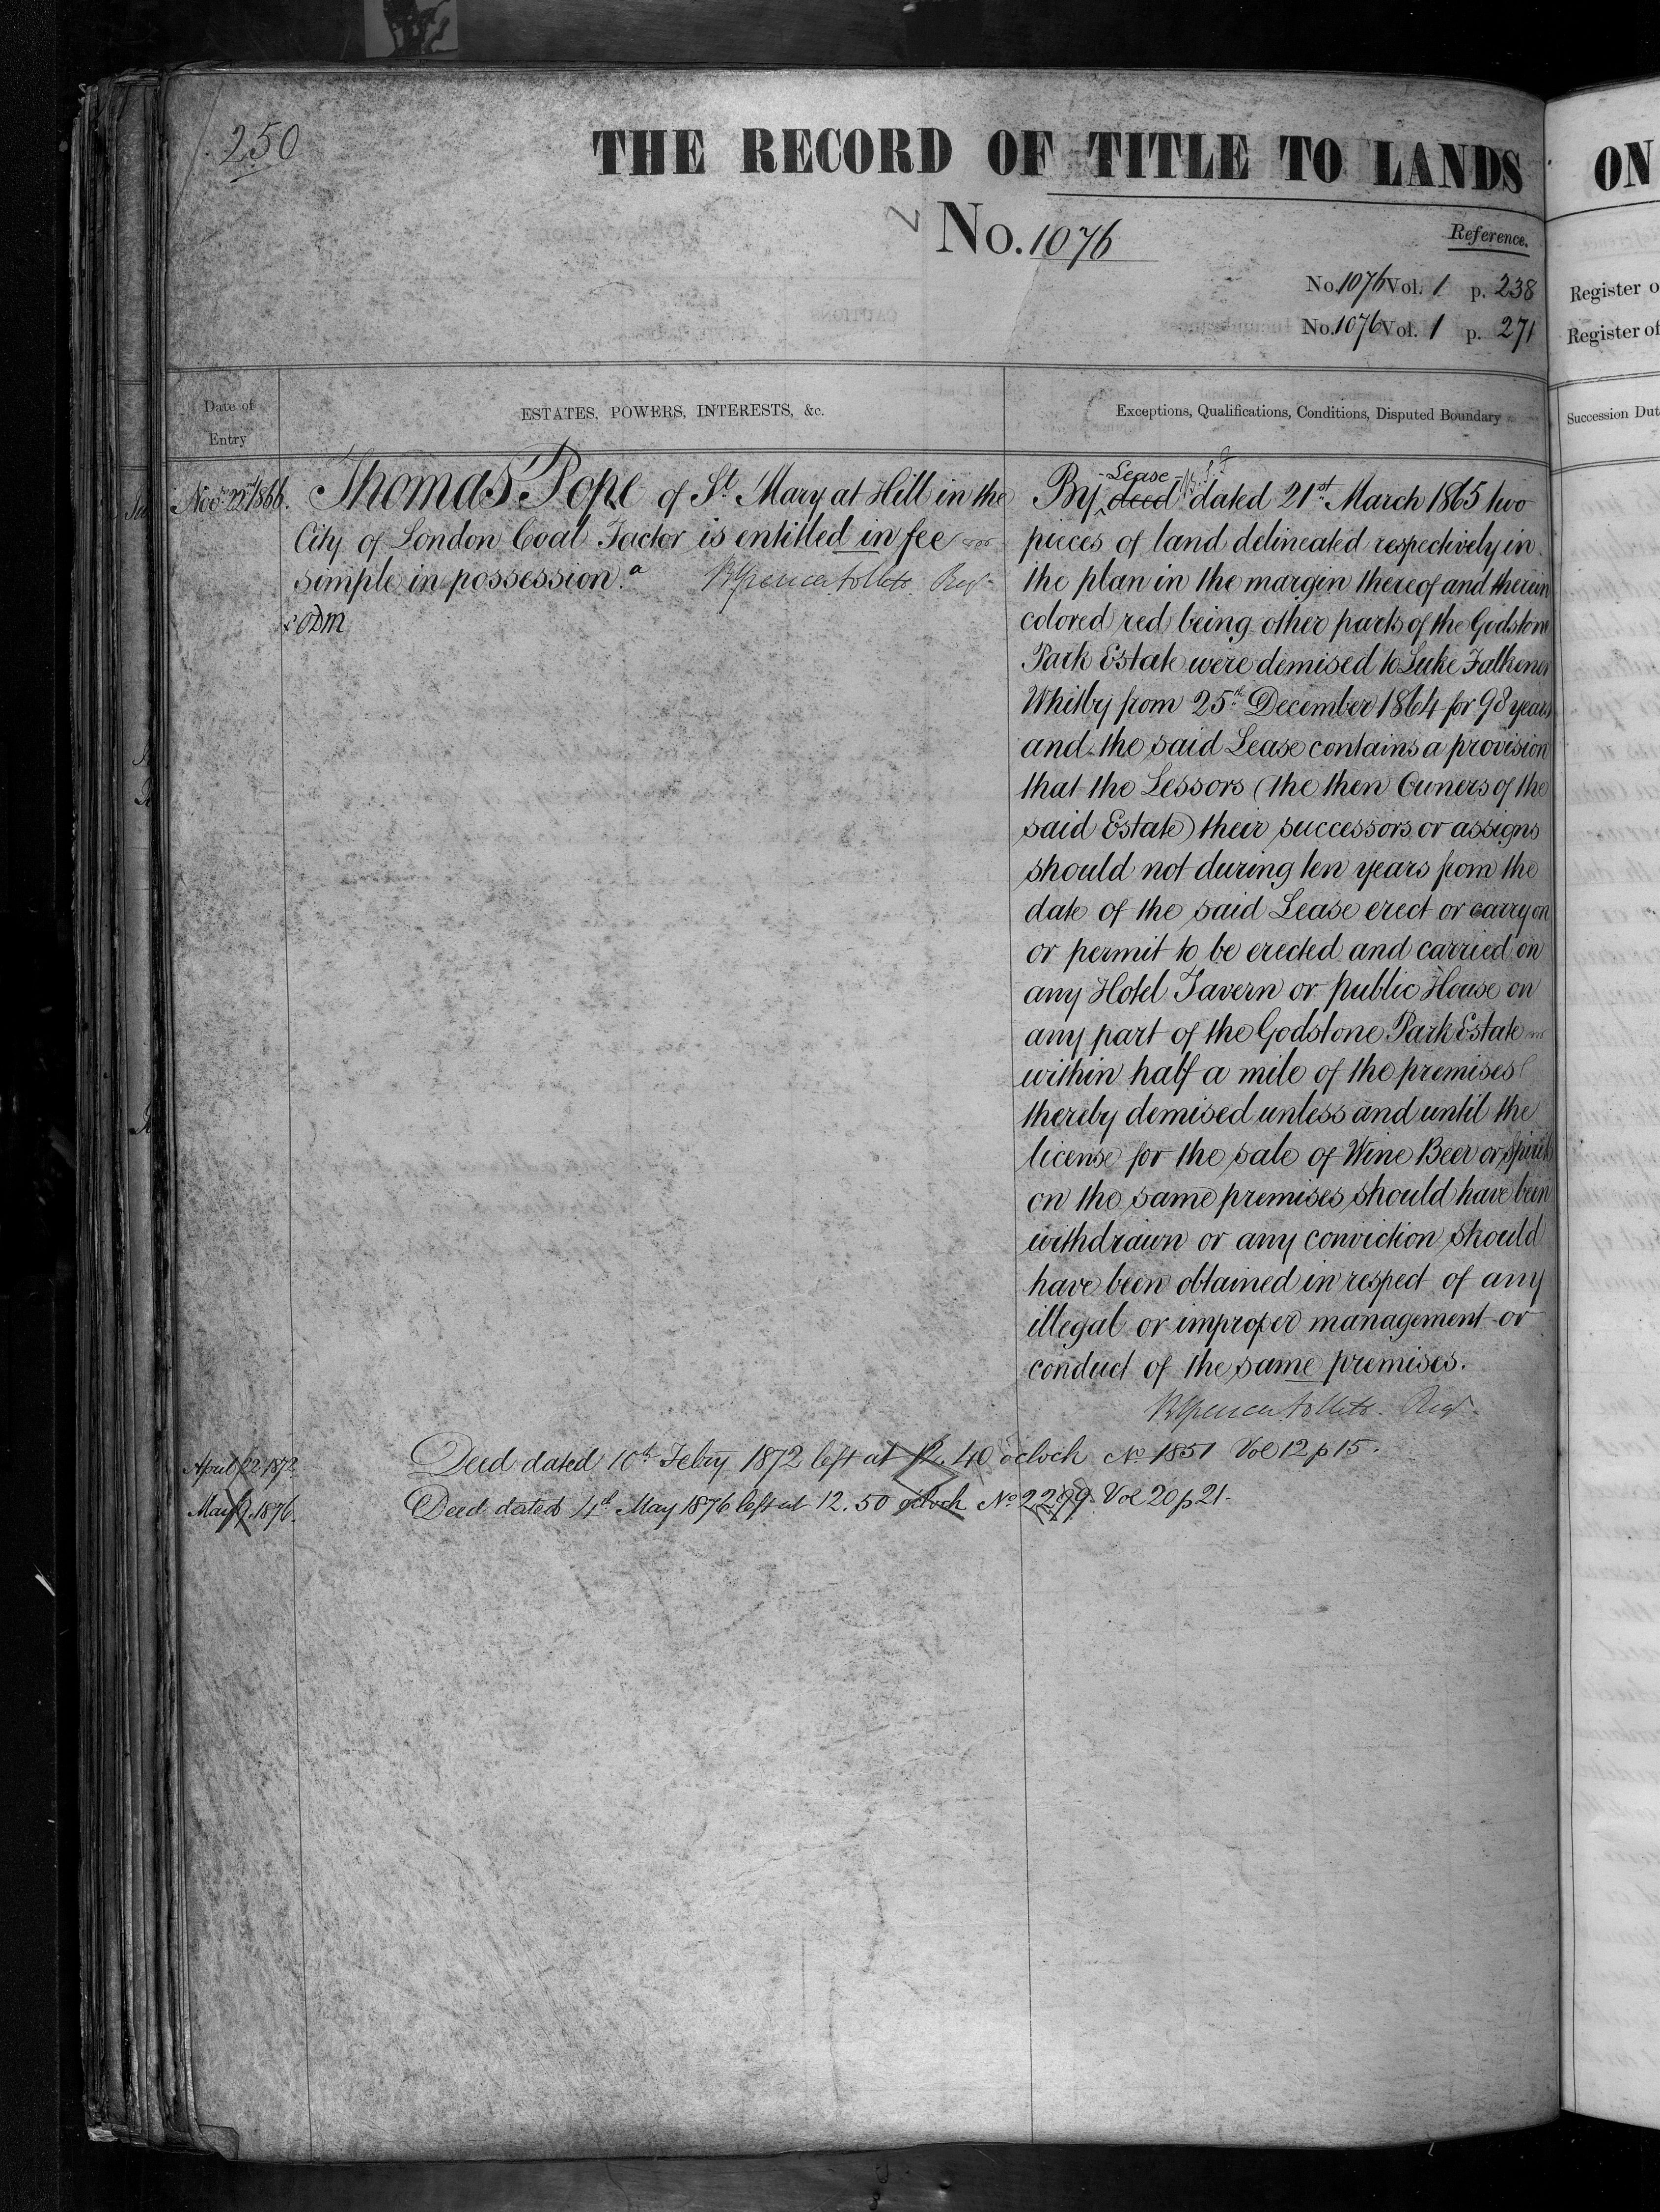 250
THE RECORD OF TITLE TO LANDS
No. 1076
Reference.
No. 1076 Vol. 1 p. 238
No. 1076 Vol. 1 p. 271
Date of Entry
ESTATES, POWERS, INTERESTS, &c.
Exceptions, Qualifications, Conditions, Disputed Boundary
Novr. 22nd 1866.
Thomas Pope of St. Mary at Hill in the
City of London Coal Factor is entitled in fee
simple in possession. a
Lease
By deed dated 21st March 1865 two
pieces of land delineated respectively in
the plan in the margin thereof and therein
colored red being other parts of the Godstone
Park Estate were demised to Luke Falkener
Whitby from 25th December 1864 for 98 years
and the said Lease contains a provision
that the Lessors (the then Owners of the
said Estate) their successors or assigns
should not during ten years from the
date of the said Lease erect or carry on
or permit to be erected and carried on
any Hotel Tavern or public House on
any part of the Godstone Park Estate
within half a mile of the premises
thereby demised unless and until the
license for the sale of Wine Beer or Spirits
on the same premises should have been
withdrawn or any conviction should
have been obtained in respect of any
illegal or improper management or
conduct of the same premises.
April 22 1872 Deed dated 10th Febry 1872 left at 12.40 o'clock No 1851 Vol 12 p 15.
May 9. 1876. Deed dated 4th May 1876 left at 12.50 o'clock No 2299 Vol 20 p 21.
ON
Register o
Register of
Succession Dut